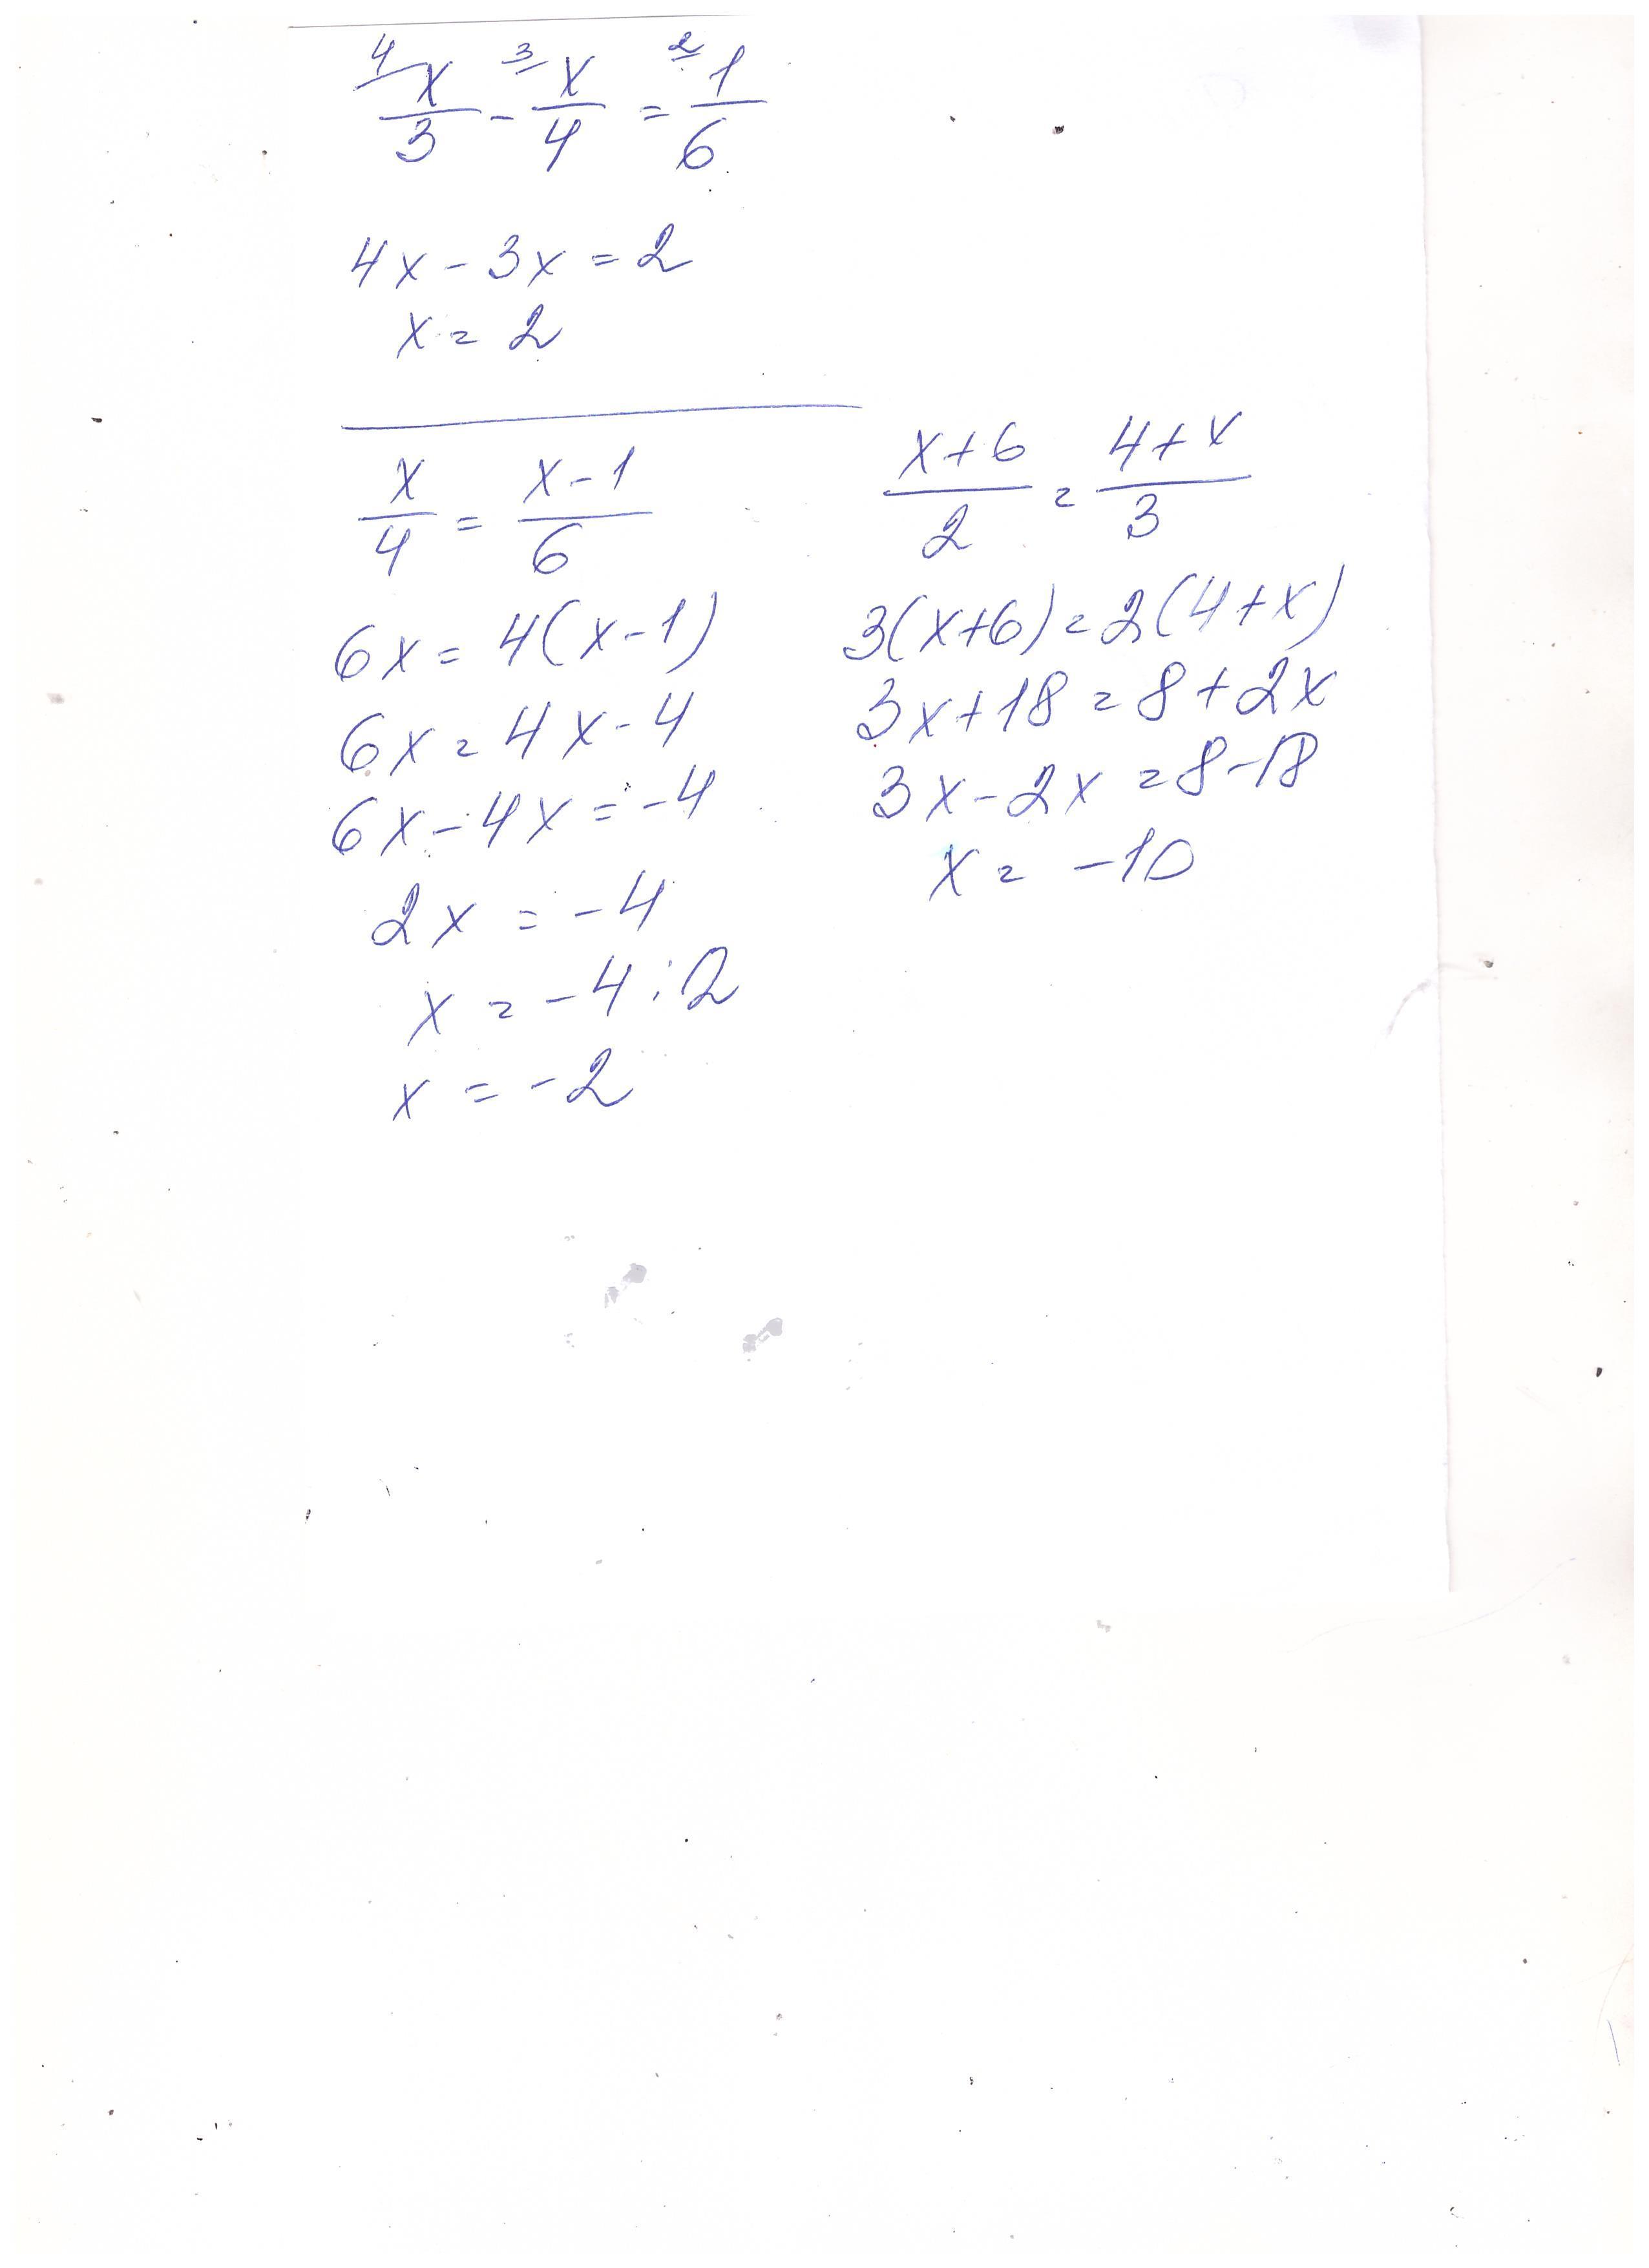 4 3 2
x/3 - x/4 = 1/6
4x - 3x = 2
x = 2
x/4 = (x-1)/6
6x = 4(x-1)
6x = 4x - 4
6x - 4x = -4
2x = -4
x = -4 : 2
x = -2
(x+6)/2 = (4+x)/3
3(x+6) = 2(4+x)
3x+18 = 8+2x
3x-2x = 8-18
x = -10